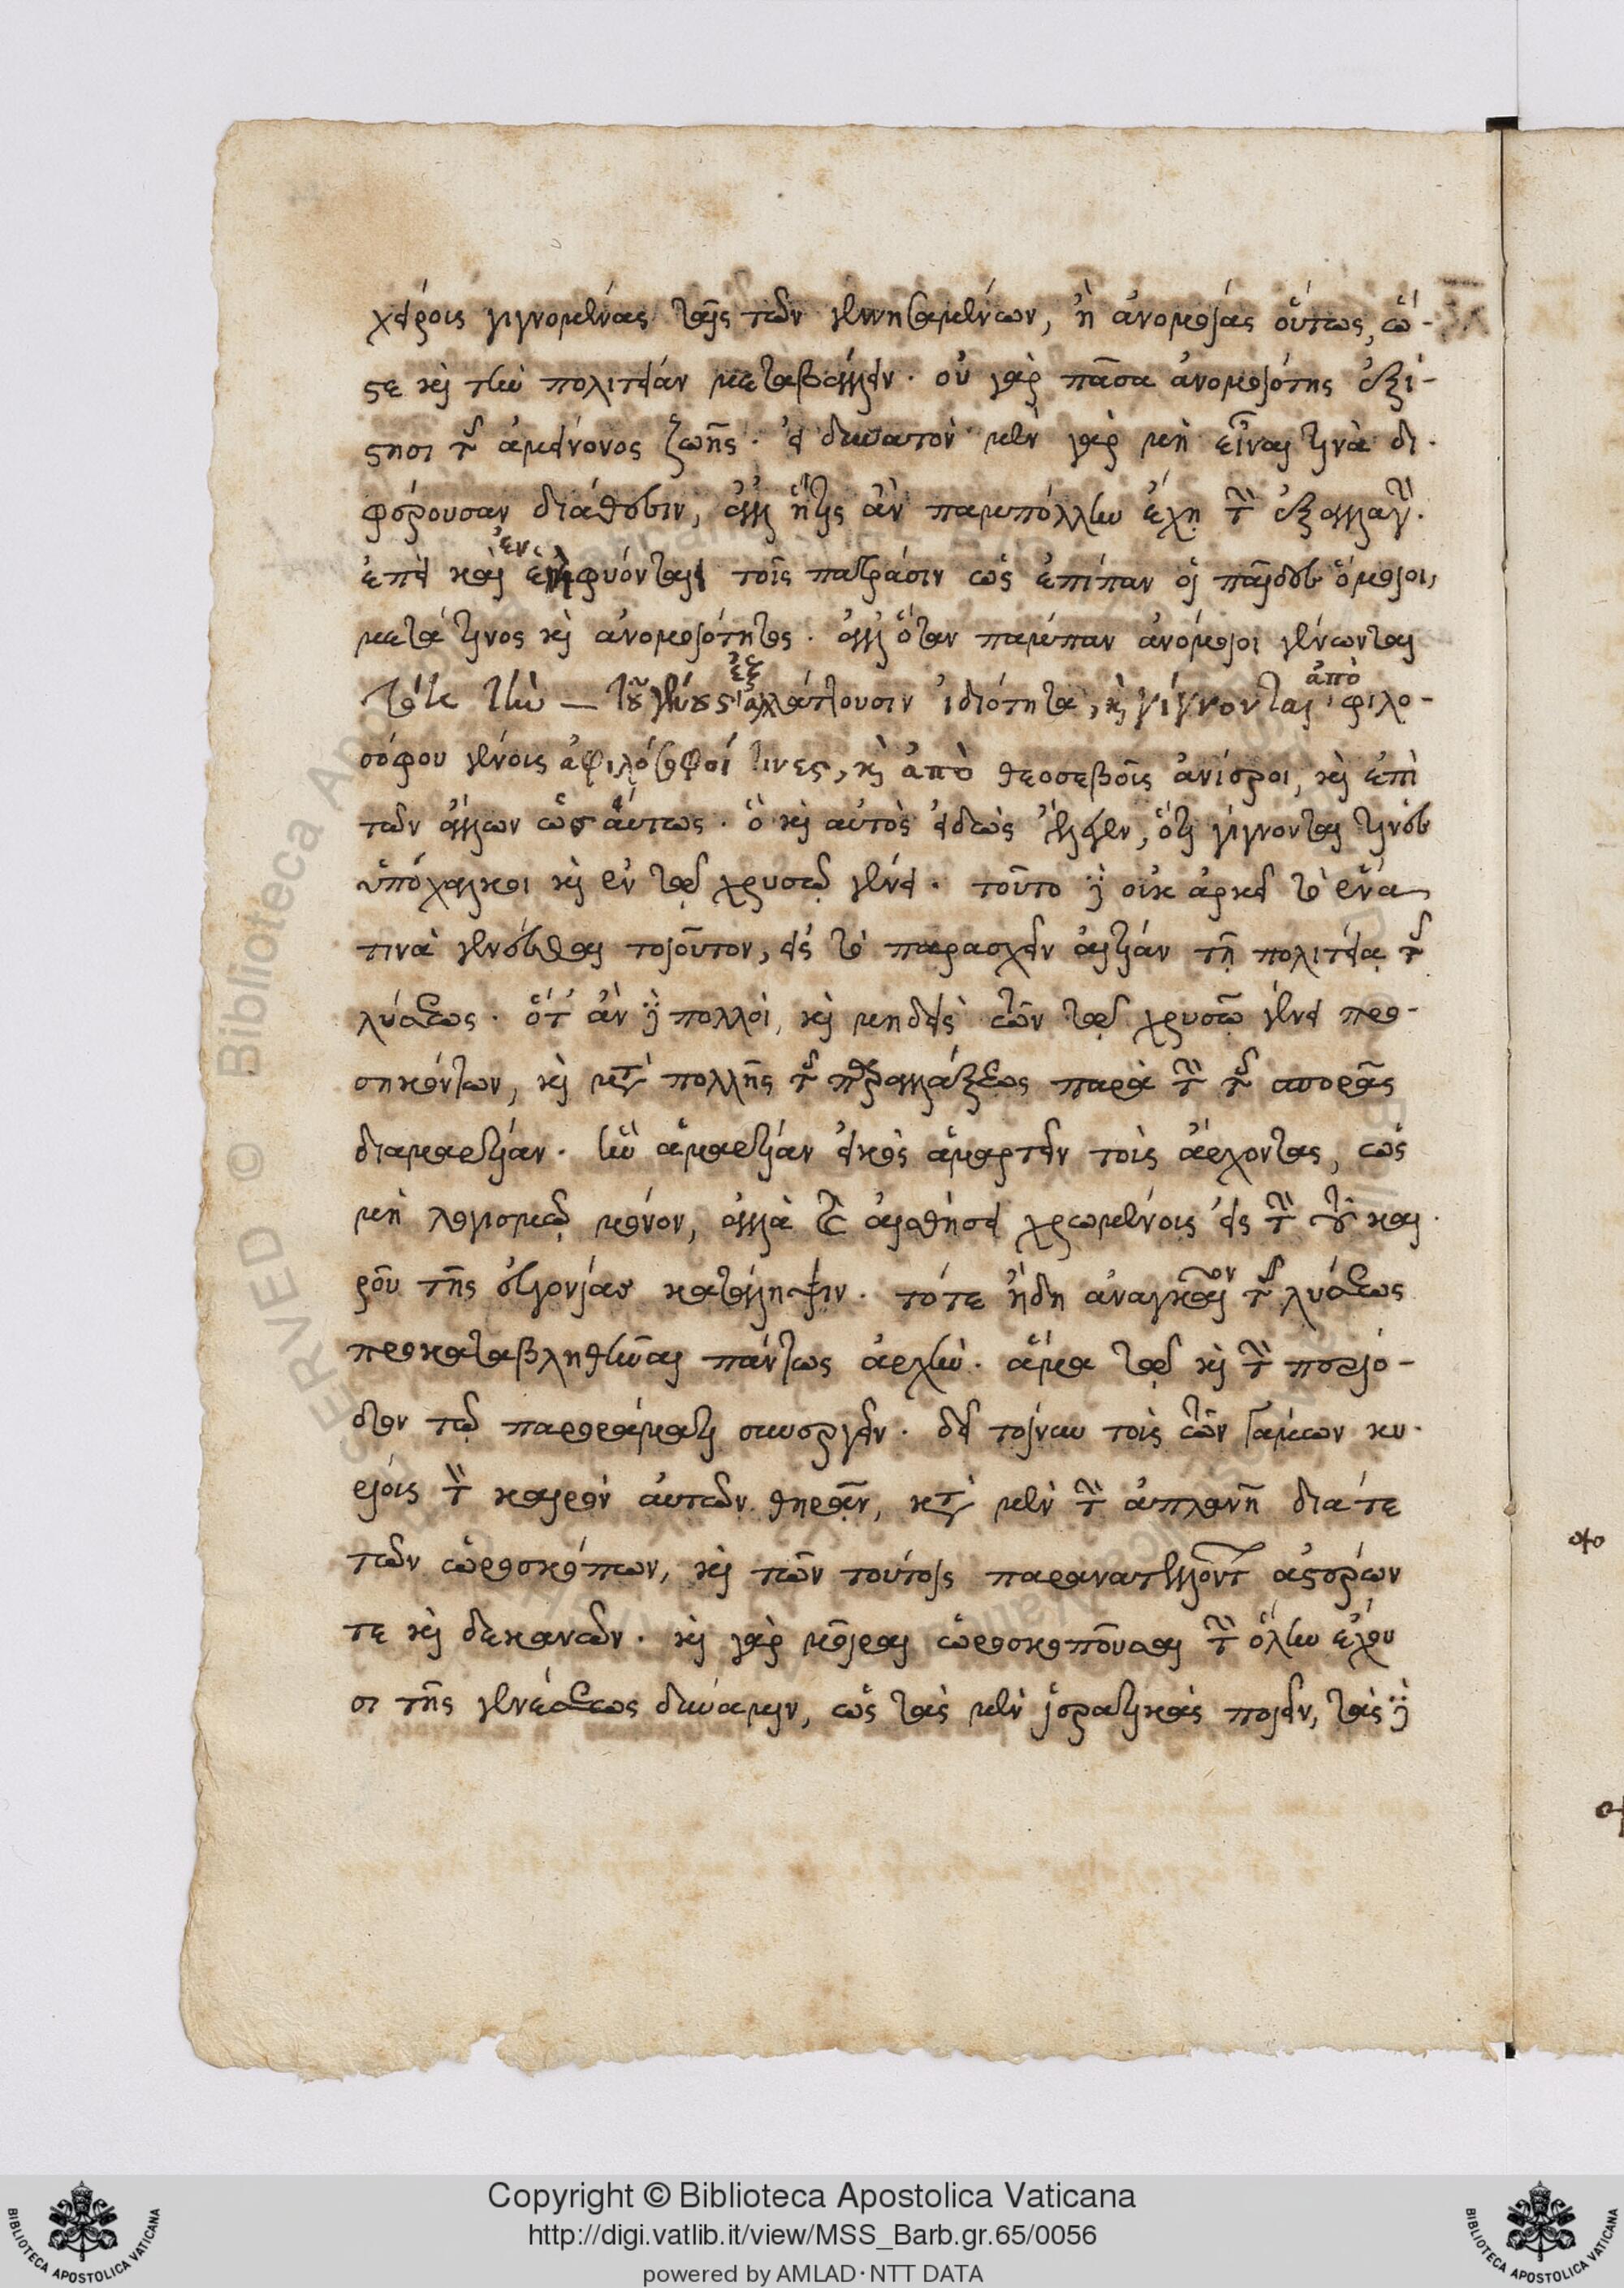 χείροις γιγνομένας ταῖς τῶν γεννησαμένων, ἢ ἀνομοίας οὕτως, ὥ-
στε καὶ τὴν πολιτείαν μεταβάλλειν. οὐ γὰρ πᾶσα ἀνομοιότης ἐξί-
στησι τῆς ἀμείνονος ζωῆς. εἰ δυνατὸν μὲν γὰρ μὴ εἶναι τινὰ δι-
φέρουσαν διάθεσιν, ἀλλ' ἥτις ἂν παμπόλλην ἔχῃ τὴν ἐξαλλαγήν.
ἐπεὶ καὶ ἐμφύονται τοῖς πατράσιν ὡς ἐπίπαν οἱ παῖδες ὅμοιοι,
μετά τινος καὶ ἀνομοιότητος. ἀλλ' ὅταν πάμπαν ἀνόμοιοι γένωνται
τότε τὴν — τοῦ γένους ἐξαλλάττουσιν ἰδιότητα, καὶ γίγνονται ἀπὸ φιλο-
σόφου γένοις ἀφιλόσοφοί τινες, καὶ ἀπὸ θεοσεβοῖς ἀνίεροι, καὶ ἐπὶ
τῶν ἄλλων ὡσαύτως. ὃ καὶ αὐτὸς εἰδὼς ἔλεγεν, ὅτι γίγνονται τινὲς
ὑπόχαλκοι καὶ ἐν τῷ χρυσῷ γένει. τοῦτο δὲ οὐκ ἀρκεῖ τὸ ἕνα
τινὰ γενέσθαι τοιοῦτον, εἰς τὸ παρασχεῖν αἰτίαν τῇ πολιτείᾳ τῆς
λύσεως. ὅτ' ἂν δὲ πολλοὶ, καὶ μηδεὶς τῶν τῷ χρυσῷ γένει προ-
σηκόντων, καὶ μετὰ πολλῆς τῆς παραλλάξεως παρὰ τὴν τῆς σπορᾶς
διαμαρτίαν. ἣν ἁμαρτίαν εἰκὸς ἁμαρτεῖν τοὺς ἄρχοντας, ὡς
μὴ λογισμῷ μόνον, ἀλλὰ καὶ αἰσθήσει χρωμένοις εἰς τὴν τοῦ και-
ροῦ τῆς εὐγονίας κατάληψιν. τότε ἤδη ἀναγκαῖον τῆς λύσεως
προκαταβληθῆναι πάντως ἀρχήν. ἅμα τῷ καὶ τὴν περίο-
δον τῷ παροράματι συνεργεῖν. δεῖ τοίνυν τοὶς τῶν γάμων κυ-
ρίοις τὸν καιρὸν αὐτῶν θηρᾶν, κατὰ μὲν τὴν ἀπλανῆ διά τε
τῶν ὡροσκόπων, καὶ τῶν τούτοις παρανατελλόντων ἀστέρων
τε καὶ δεκανῶν. καὶ γὰρ μοῖραι ὡροσκοποῦσαι τὴν ὅλην ἔχου
σι τῆς γενέσεως δύναμιν, ὡς τὰς μὲν ἱερατικὰς ποιεῖν, τὰς δὲ
Copyright © Biblioteca Apostolica Vaticana
http://digi.vatlib.it/view/MSS_Barb.gr.65/0056
powered by AMLAD·NTT DATA